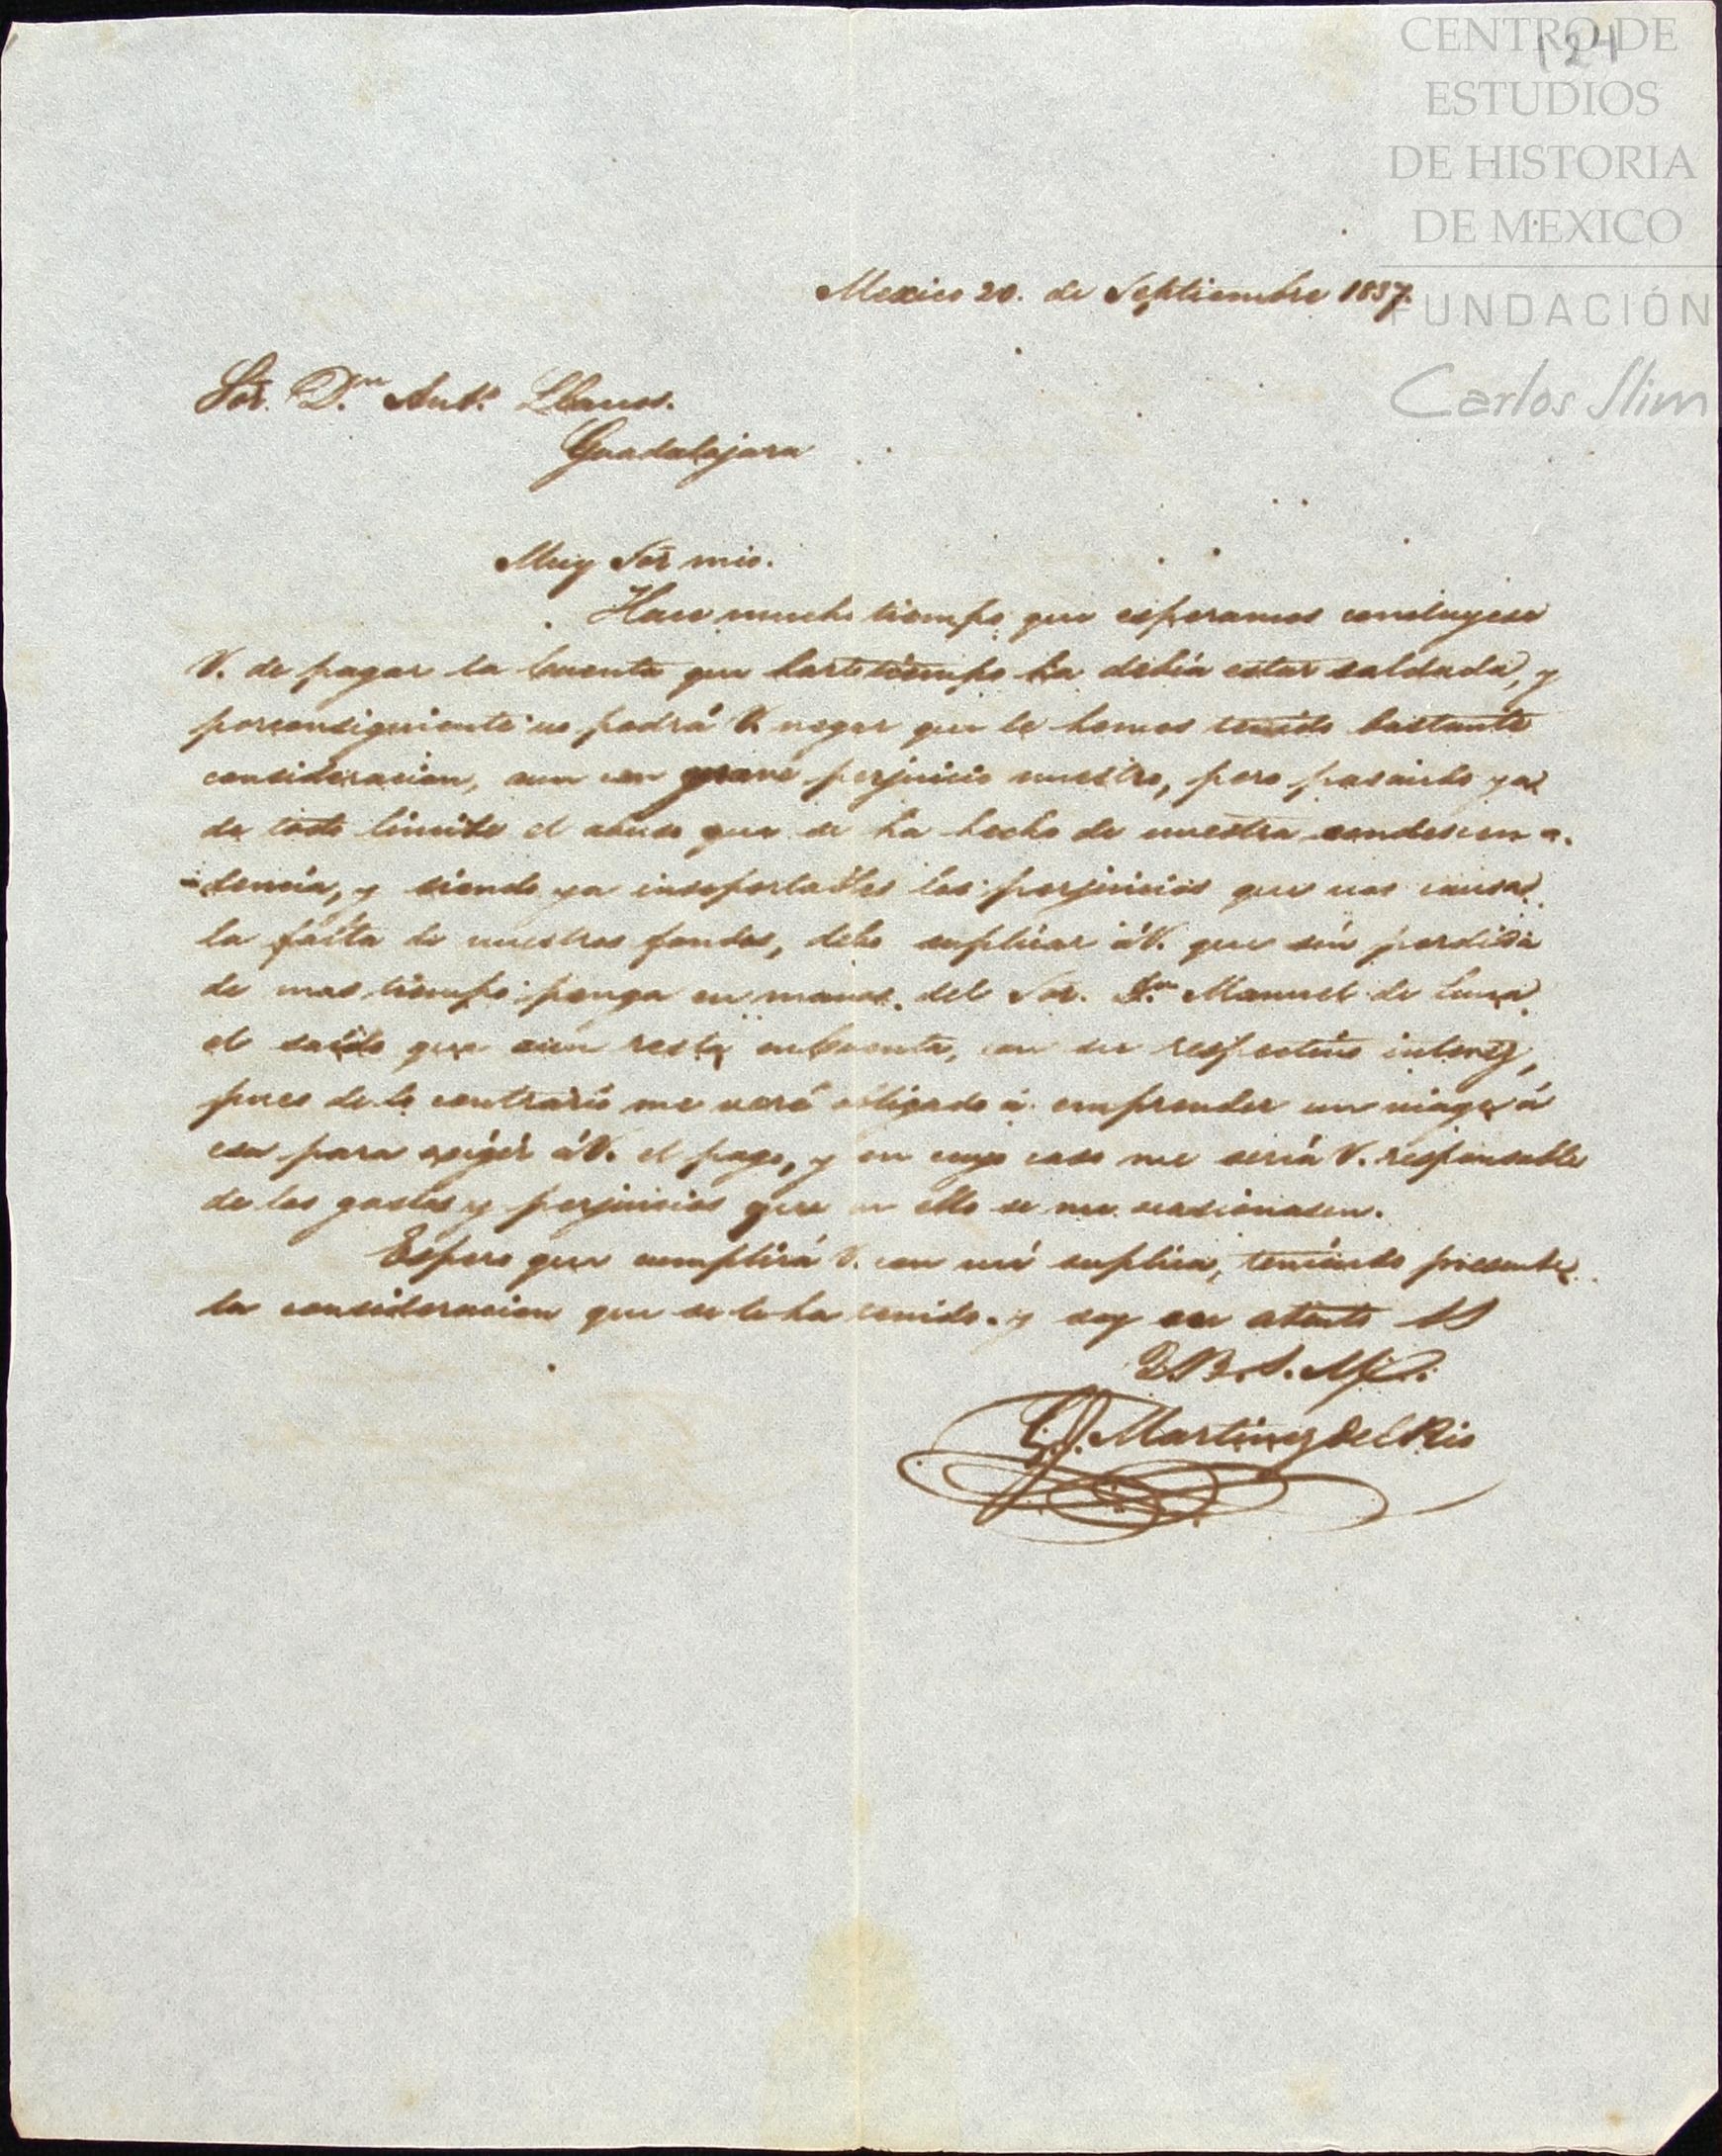 124
CENTRO DE
ESTUDIOS
DE HISTORIA
DE MEXICO
FUNDACIÓN
Carlos Slim
Mexico 20. de Septiembre 1837.
Sor. Dn. Anto. Llanos.
Guadalajara
Muy Sor mio.
Hace mucho tiempo que esperamos concluyese
V. de pagar la cuenta que harto tiempo ha debia estar saldada, y
por consiguiente no podrá V. negar que le hemos tenido bastante
consideracion, aun con grave perjuicio nuestro, pero pasando ya
de todo limite el abuso que se ha hecho de nuestra condescen-
-dencia, y siendo ya insoportables los perjuicios que nos causa
la falta de nuestros fondos, debo suplicar á V. que sin perdida
de mas tiempo ponga en manos del Sor. Dn. Manuel de Luna
el saldo que aún resta en cuenta, con su respectivo interez,
pues de lo contrario me veré obligado á emprender un viage á
esa para exigir á V. el pago, y en cuyo caso me seria V. responsable
de los gastos y perjuicios que en ello se me ocasionasen.
Espero que cumplirá V. con mi suplica, teniendo presente
la consideracion que se le ha tenido. y soy su atento SS
Q.B.S.M.
Martinez del Rio